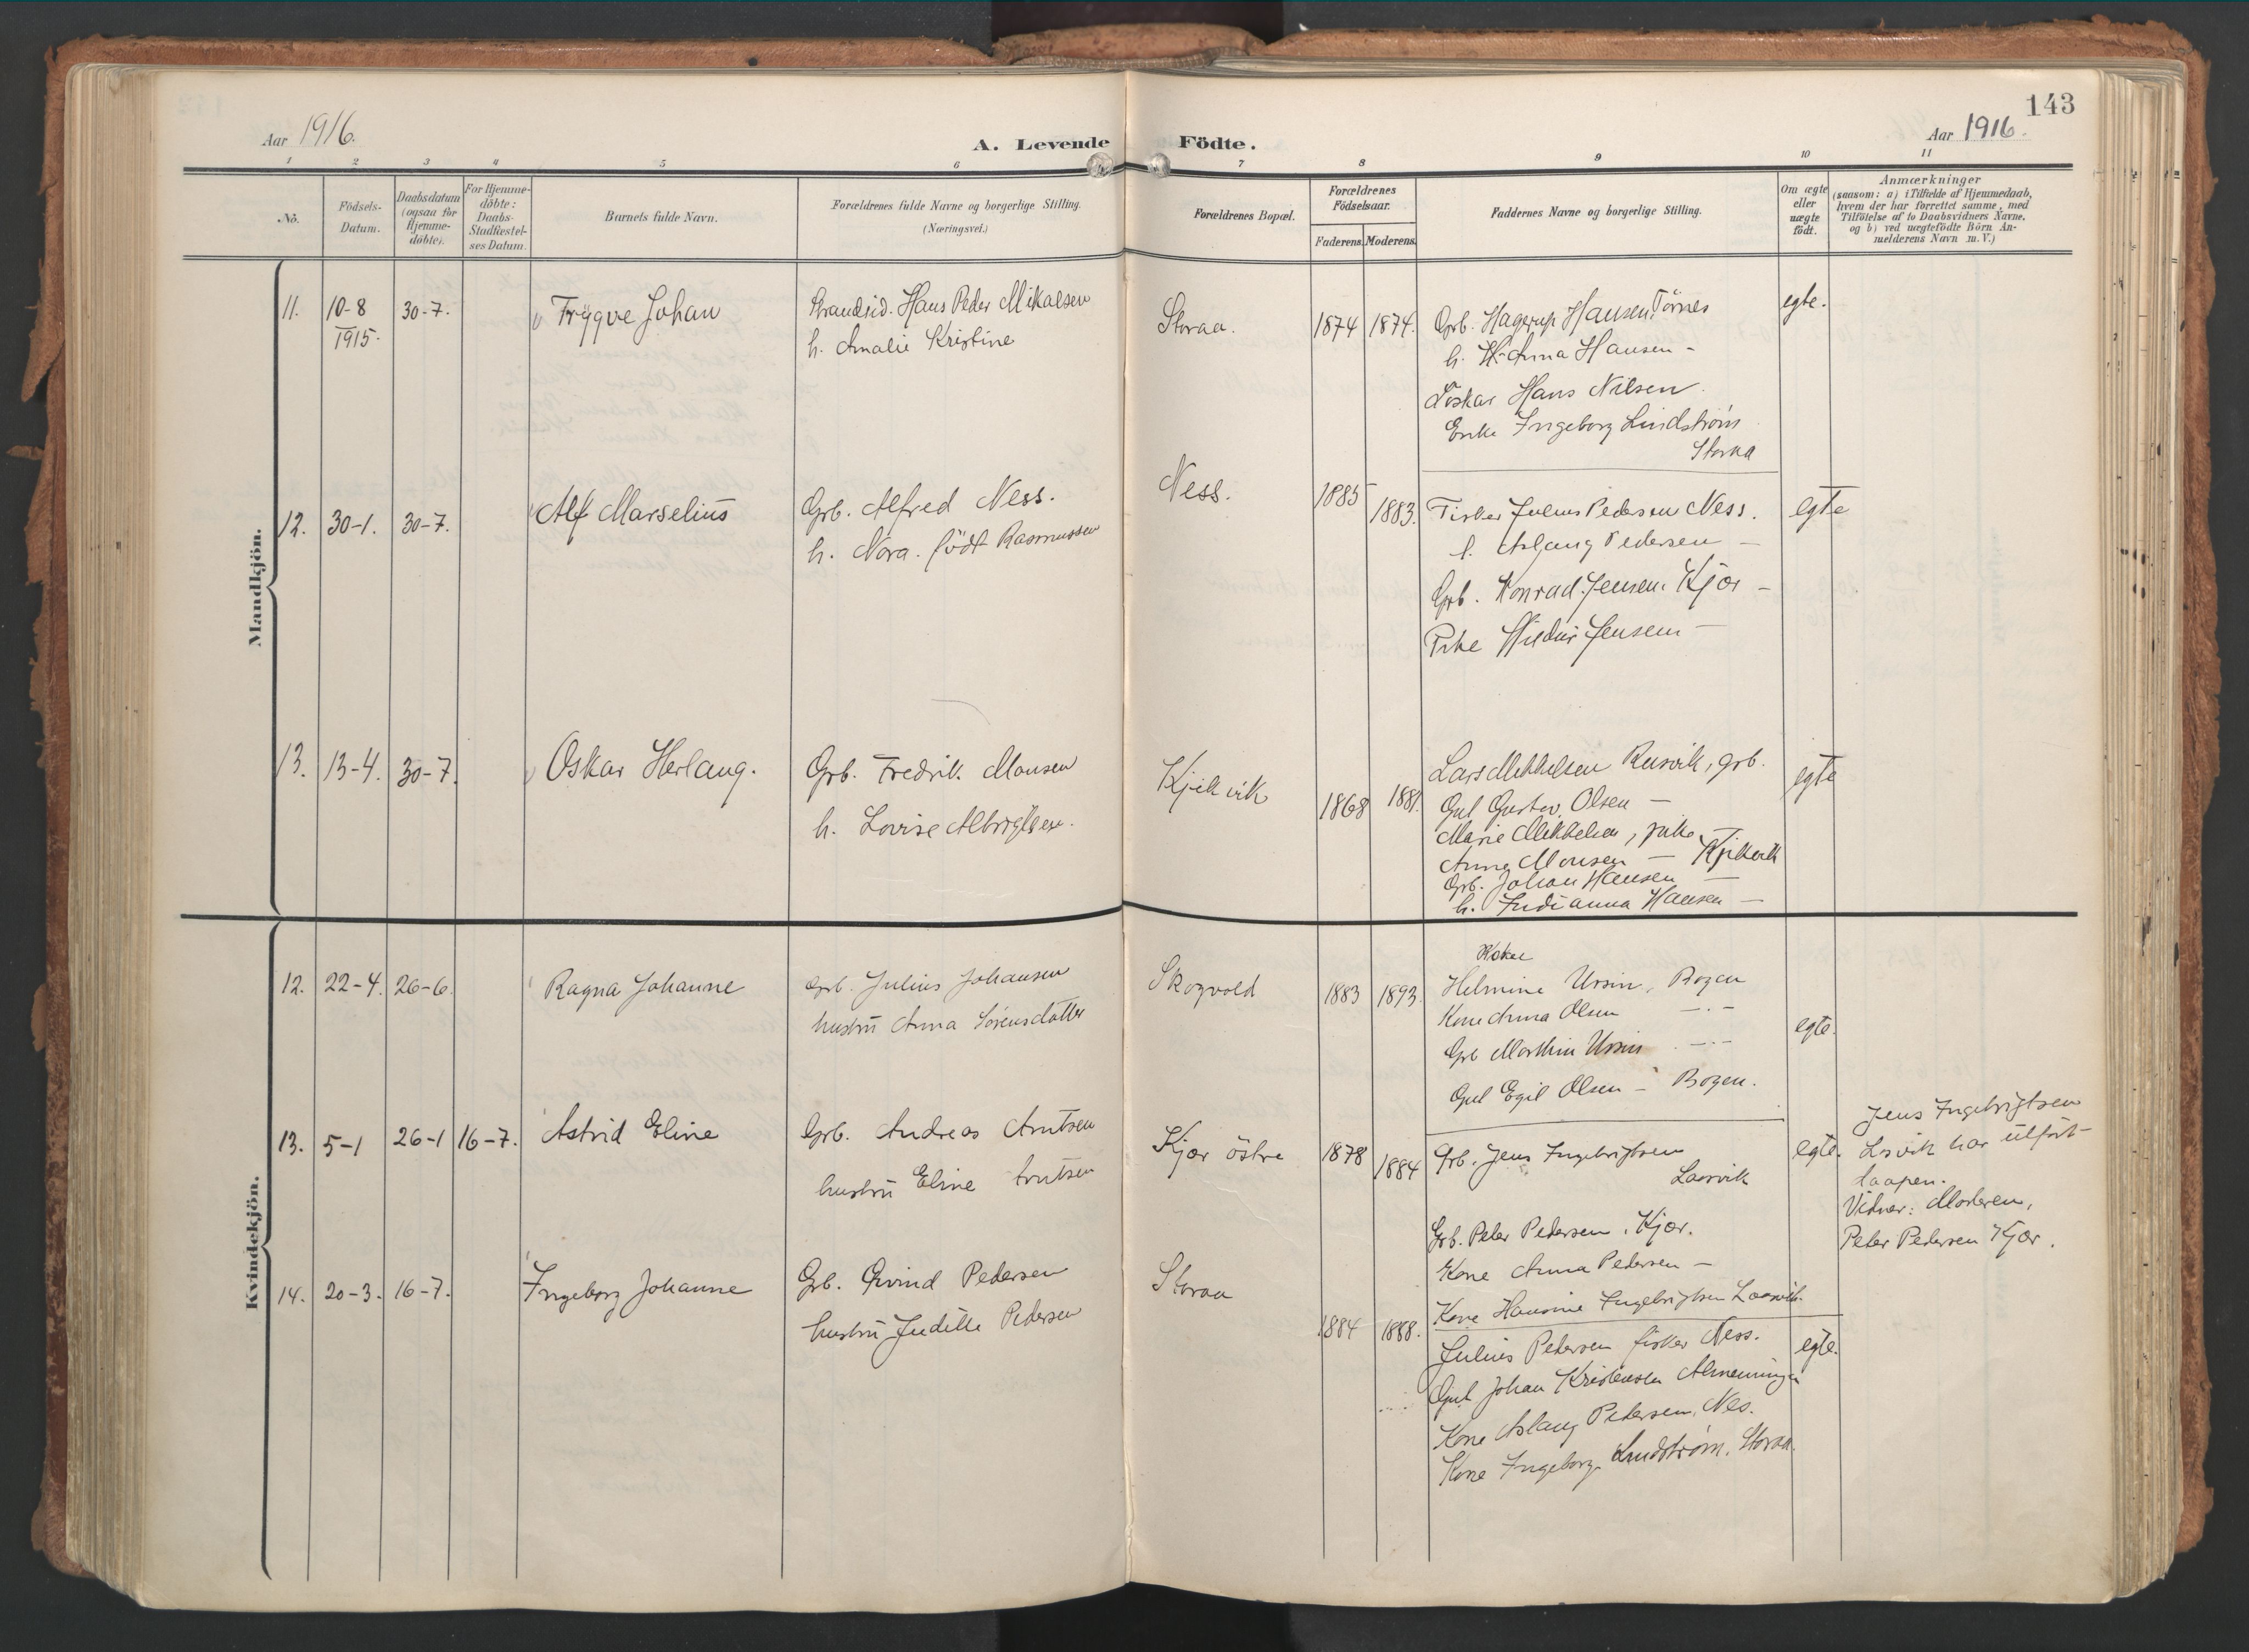 143
Aar 1916.
A. Levende Födte.
Aar 1916.
1 2 3 4 5 6 7 8 9 10 11
No.
Födsels-
Datum.
Daabsdatum
(ogsaa for
Hjemme-
döbte).
For Hjemme-
döbte:
Daabs-
Stadfestel-
ses Datum.
Barnets fulde Navn.
Forældrenes fulde Navne og borgerlige Stilling.
(Næringsvei.)
Forældrenes Bopæl.
Forældrenes
Födselsaar.
Faderens. Moderens.
Faddernes Navne og borgerlige Stilling.
Om ægte
eller
uægte
födt.
Anmærkninger
(saasom: a) i Tilfælde af Hjemmedaab,
hvem der har forrettet samme, med
Tilföielse af to Daabsvidners Navne,
og b) ved uægtefödte Börn An-
melderens Navn m. V.)
Mandkjön.
11.
10-8
1915.
30-7.
Trygve Johan
Strandsid. Hans Peder Mikalsen
h. Amalie Kristine
Storaa.
1874 1874.
Grb. Hagerup Hansen, Törnes
h. Anna Hansen -
Hans Nilsen
Enke Ingeborg Lindström
Storaa
egte.
12.
30-1.
30-7.
Alf Marselius
Grb. Alfred Ness.
h. Nora. född Rasmussen
Ness.
1885 1883.
Fisker Julius Pedersen Ness.
h. Aslaug Pedersen -
Grb. Konrad Jensen. Kjær -
Pike Jensen -
egte
13.
13-4.
30-7.
Oskar Herlaug.
Grb. Fredrik Monsen
h. Lovise Albrigtsen.
Kjelkvik
1868 1881.
Lars Mikkelsen Rusvik, grb.
Gut Gustav Olsen -
Marie Mikkelsen, pike
Anna Monsen - Kjelkvik
Grb. Johan Hansen -
h. Indianna Hansen -
egte
Kvindekjön.
12.
22-4.
26-6.
Ragna Johanne
Grb. Julius Johansen
hustru Anna Sörensdatter
Skogvold
1883 1893.
Helmine Ursin, Bogen
Kone Anna Olsen -.-
Grb Marthin Ursin -.-
Gut Egil Olsen - Bogen.
egte.
13.
5-1
26-1
16-7.
Astrid Eline
Grb. Andreas Arntsen
hustru Eline Arntsen
Kjær östre
1878 1884
Grb. Jens Ingebrigtsen
Laasvik
Grb. Peter Pedersen, Kjær.
Kone Anna Pedersen -
Kone Hansine Ingebrigtsen Laasvik.
egte.
Jens Ingebrigtsen
Losvik har utfört
daapen.
Vidner: Moderen,
Peter Pedersen Kjær.
14.
20-3.
16-7.
Ingeborg Johanne
Grb. Øivind Pedersen
hustru Judithe Pedersen
Storaa
1884 1888.
Julius Pedersen fisker Ness.
Gut Johan Kristensen Almenningen
Kone Aslaug Pedersen, Nes.
Kone Ingeborg Lindström. Storaa.
egte.